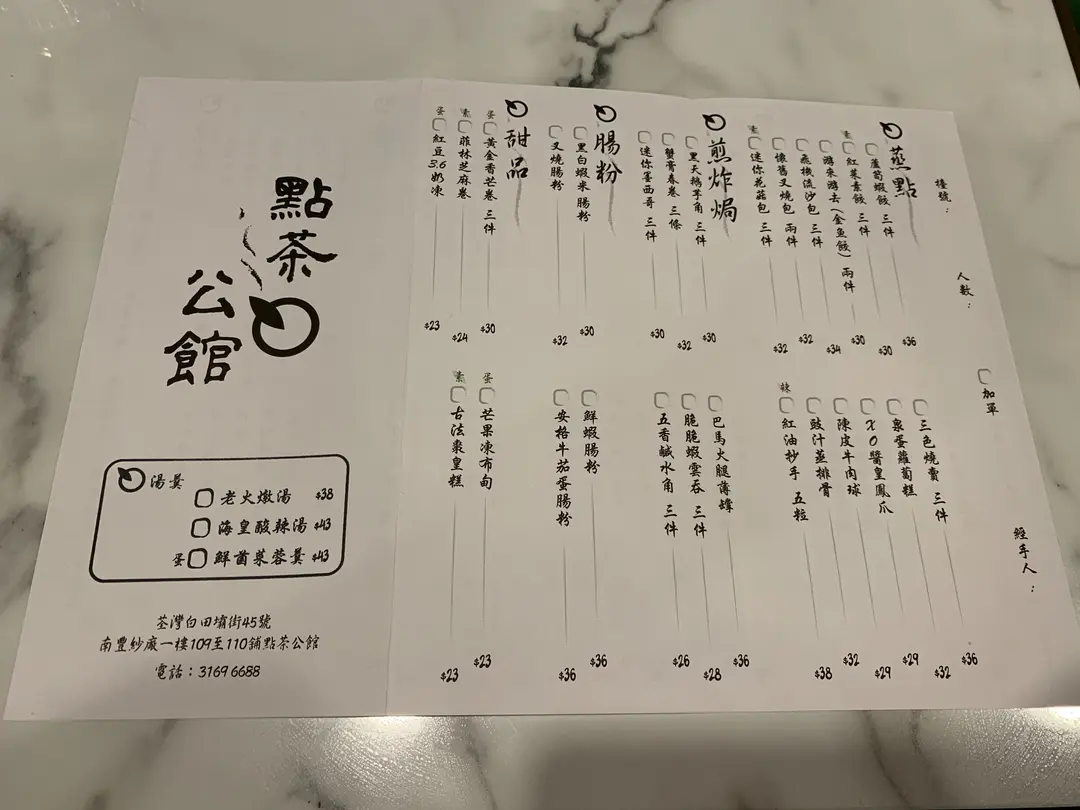 檯號：
人數：
加單
經手人：
蒸點
蘆筍蝦餃 三件 $36
素 紅菜素餃 三件 $30
游來游去(金魚餃) 兩件 $30
飛機流沙包 三件 $34
懷舊叉燒包 兩件 $32
素 迷你花菇包 三件 $32
三色燒賣 三件 $36
泉蛋蘿蔔糕 $32
XO醬皇鳳爪 $29
陳皮牛肉球 $29
豉汁蒸排骨 $32
辣 紅油抄手 五粒 $38
煎炸焗
黑天鵝芋角 三件 $30
蟹膏春卷 三條 $32
迷你墨西哥 三件 $30
巴馬火腿薄罉 $36
脆脆蝦雲吞 三件 $28
五香鹹水角 三件 $26
腸粉
黑白蝦米腸粉 $30
叉燒腸粉 $32
鮮蝦腸粉 $36
安格牛茄蛋腸粉 $36
甜品
蛋 黃金香芒卷 三件 $30
素 菲林芝麻卷 $24
蛋 紅豆3.6奶凍 $23
蛋 芒果凍布甸 $23
素 古法棗皇糕 $23
點茶
公館
湯羹
老火燉湯 $38
海皇酸辣湯 $43
蛋 鮮菌菜蓉羹 $43
荃灣白田壩街45號
南豐紗廠一樓109至110舖點茶公館
電話：3169 6688